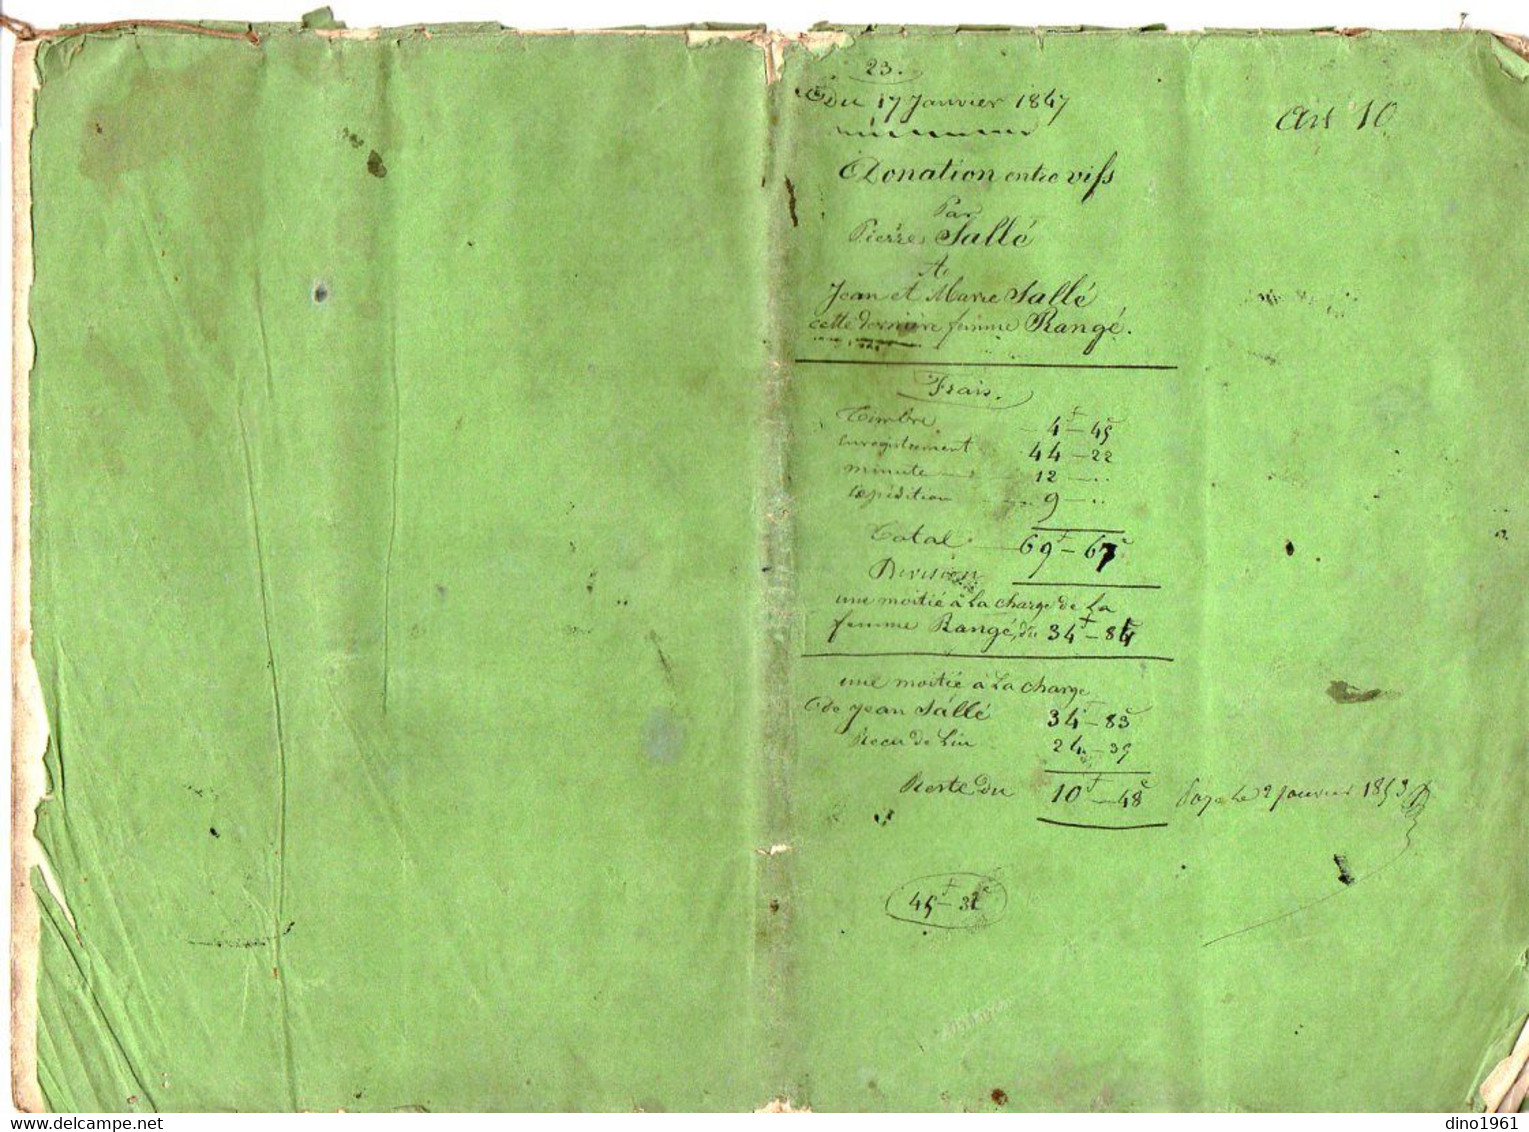 23.
Du 17 Janvier 1847
Art 10
Donation entre vifs
Par
Pierre Sallé
A
Jean et Marie Sallé
cette dernière femme Rangé.
Frais.
Timbre 4f—45c
Enregistrement 44—22
minute 12—..
Expédition 9—..
Total 69f—67c
Division
une moitié à la charge de la
femme Rangé, du 34f—84c
une moitié à la charge
de jean Sallé 34—83c
Reçu de lui 24—39
Reste du 10f—48c Payé le 2 janvier 1853
45f—32c
www.delcampe.net
dino1961